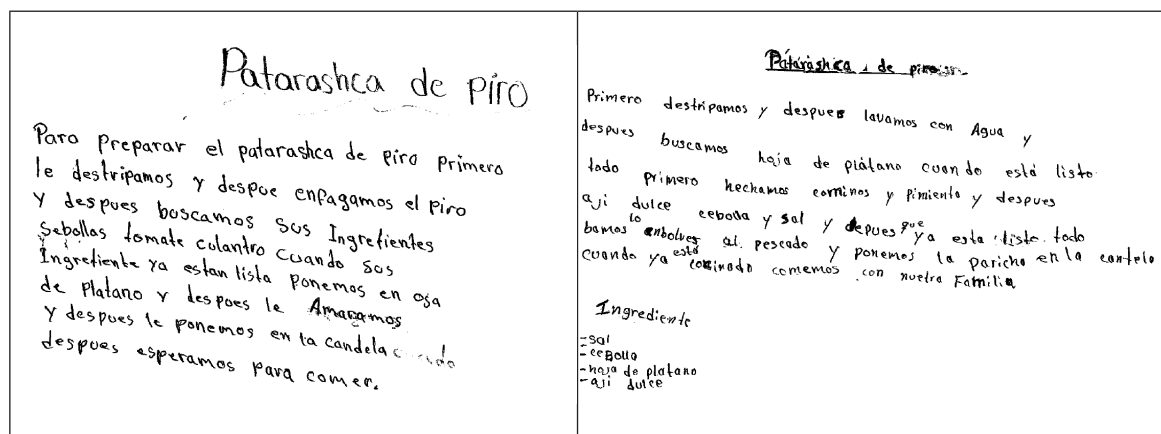 Patarashca de piro
Para preparar el patarashca de piro primero
le destripamos y despue enpagamos el piro
y despues boscamos sus Ingretientes
sebollas tomate culantro cuando sos
Ingretiente ya estan lista ponemos en oja
de platano y despoes le Amaramos
y despues le ponemos en la candela
despues esperamos para comer.
Patarashica de
Primero destripamos y despues lavamos con Agua y
despues buscamos hoja de plátano cuando está listo
todo primero hechamos cominos y pimiento y despues
aji dulce cebolla y sal y depues que ya esta liste todo
bamos lo enbolves al pescado y ponemos la paricha en la cantela
cuando ya está comemos con nuetra Familia
Ingrediente
-sal
-ceBolla
-hoja de platano
-aji dulce